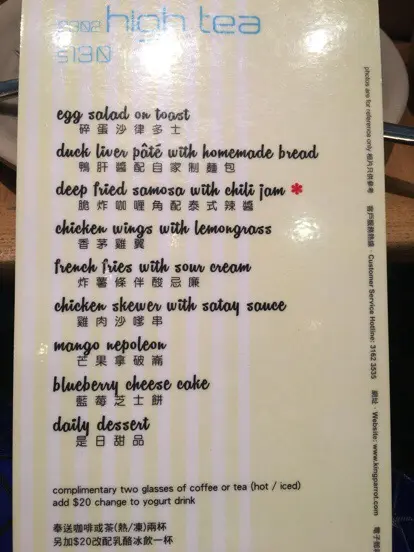 high tea
$130
egg salad on toast
碎蛋沙律多士
duck liver pâté with homemade bread
鴨肝醬配自家制麵包
deep fried samosa with chili jam *
脆炸咖喱角配泰式辣醬
chicken wings with lemongrass
香茅雞翼
french fries with sour cream
炸薯條伴酸忌廉
chicken skewer with satay sauce
雞肉沙嗲串
mango nepoleon
芒果拿破崙
blueberry cheese cake
藍莓芝士餅
daily dessert
是日甜品
complimentary two glasses of coffee or tea (hot / iced)
add $20 change to yogurt drink
奉送咖啡或茶(熱/凍)兩杯
另加$20改配乳酪冰飲一杯
photos are for reference only 相片只供參考 客戶服務熱線 · Customer Service Hotline: 3162 3535 網址 · Website: www.kingparrot.com